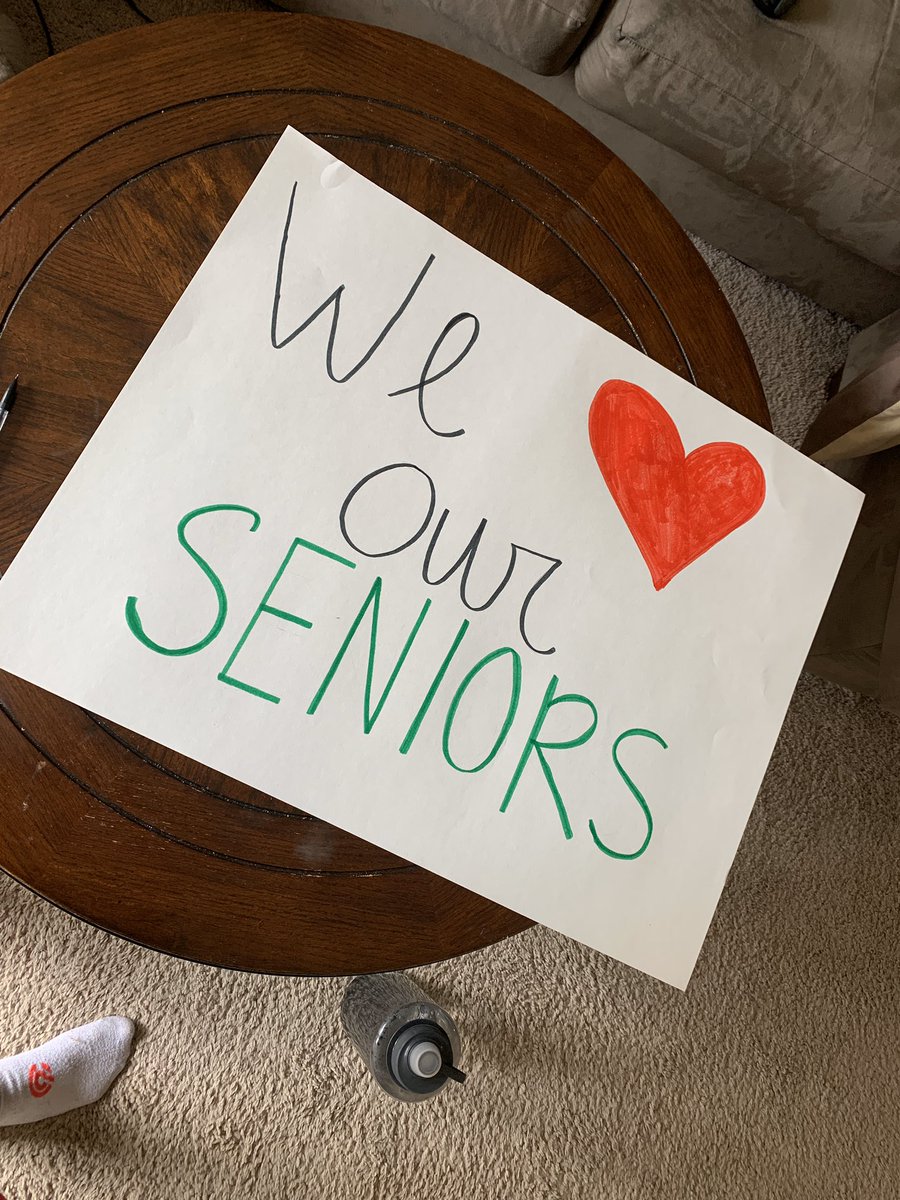 We
our
SENIORS